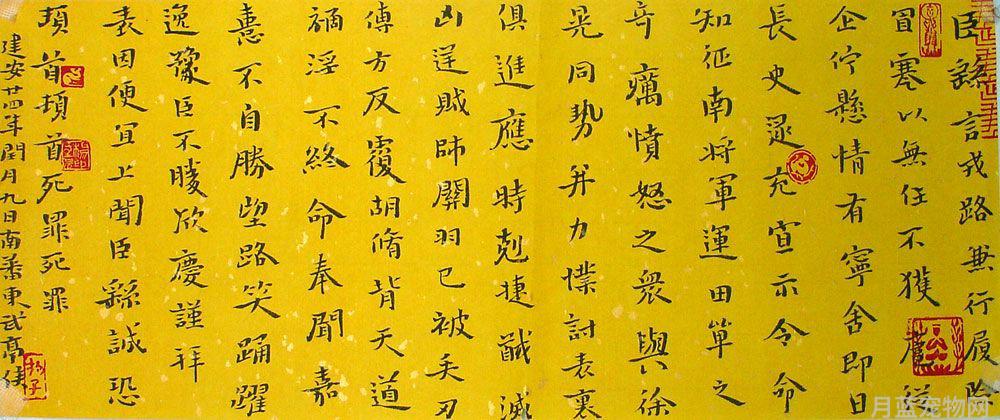 臣繇言戎路兼行履險
冒寒以無任不獲扈從
企佇懸情有寧舍即日
長史逯充宣示令命
知征南将軍運田單之
奇厲憤怒之衆與徐
晃同势并力撲討表裏
俱進應時剋捷馘滅
凶逆賊帥關羽已被矢刃
傅方反覆胡脩背天道
禍淫不終命奉聞嘉
憙不自勝望路笑踊躍
逸豫臣不勝欣慶謹拜
表因便宜上聞臣繇誠恐
頓首頓首死罪死罪
建安廿四年閏月九日南蕃東武亭侯
月蓝宠物网